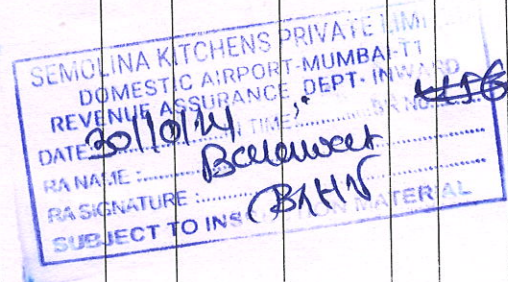 SEMOLINA KITCHENS PRIVATE LIMI
DOMESTIC AIRPORT-MUMBAI-T1
REVENUE ASSURANCE DEPT- INWARD
DATE 30/10/24 IN TIME: SR NO.
RA NAME :
RA SIGNATURE :
SUBJECT TO INS ON MATERIAL